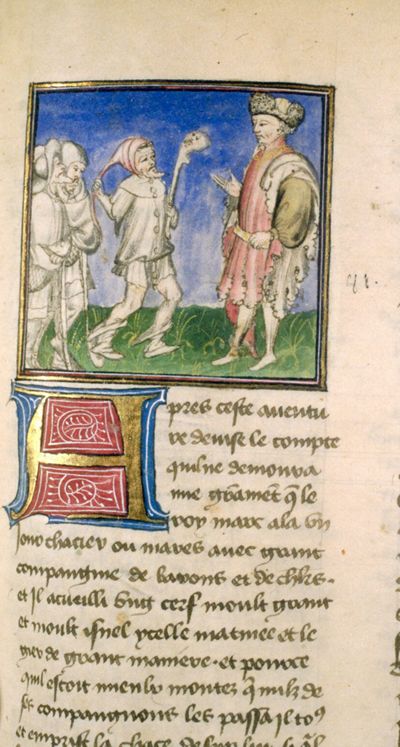 Apres ceste aventu
re devise le compte
quil ne demoura
mie gramēt q̄ le
roy marc ala un
jour chacier ou mares avec grant
compaignie de barons et de chl̄rs.
et il acueilli ung cerf moult grant
et moult isnel ycelle matinee et le
de grant maniere. et pource
quil estoit mieulx montez q̄ nulz de
ses compaignons les passa il to9
et emprist la chace